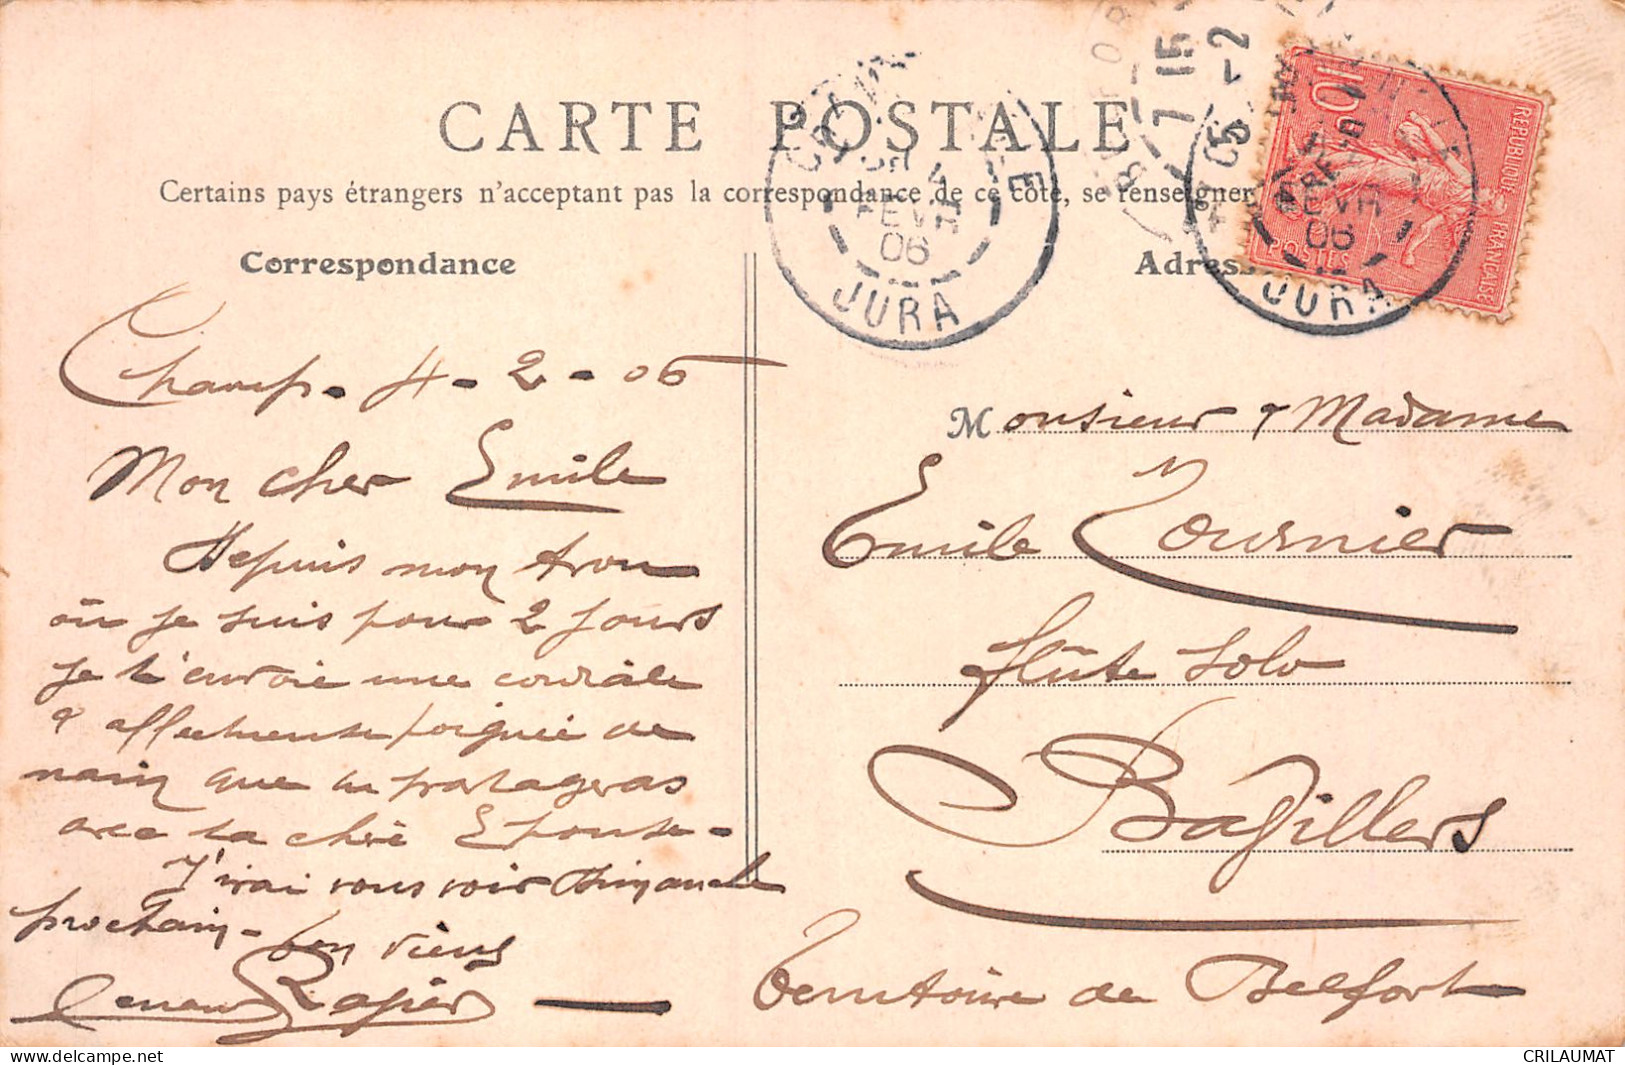 CARTE POSTALE
Certains pays étrangers n'acceptent pas la correspondance de ce côté, se renseigner
Correspondance
Adress
4
FEVR
06
JURA
7 15
5-2
06
BELFORT
10
RÉPUBLIQUE FRANÇAISE
POSTES
FEVR
06
JURA
Champ. 4-2-06
Mon cher Emile
Depuis mon trou
où je suis pour 2 jours
je t'envoie une cordiale
& affectueuse poignée de
main que tu partageras
avec ta chère Epouse-
J'irai vous voir Dimanche
prochain- ton vieux
Monsieur & Madame
Emile Tournier
flûte solo
Bavillers
Territoire de Belfort
CRILAUMAT